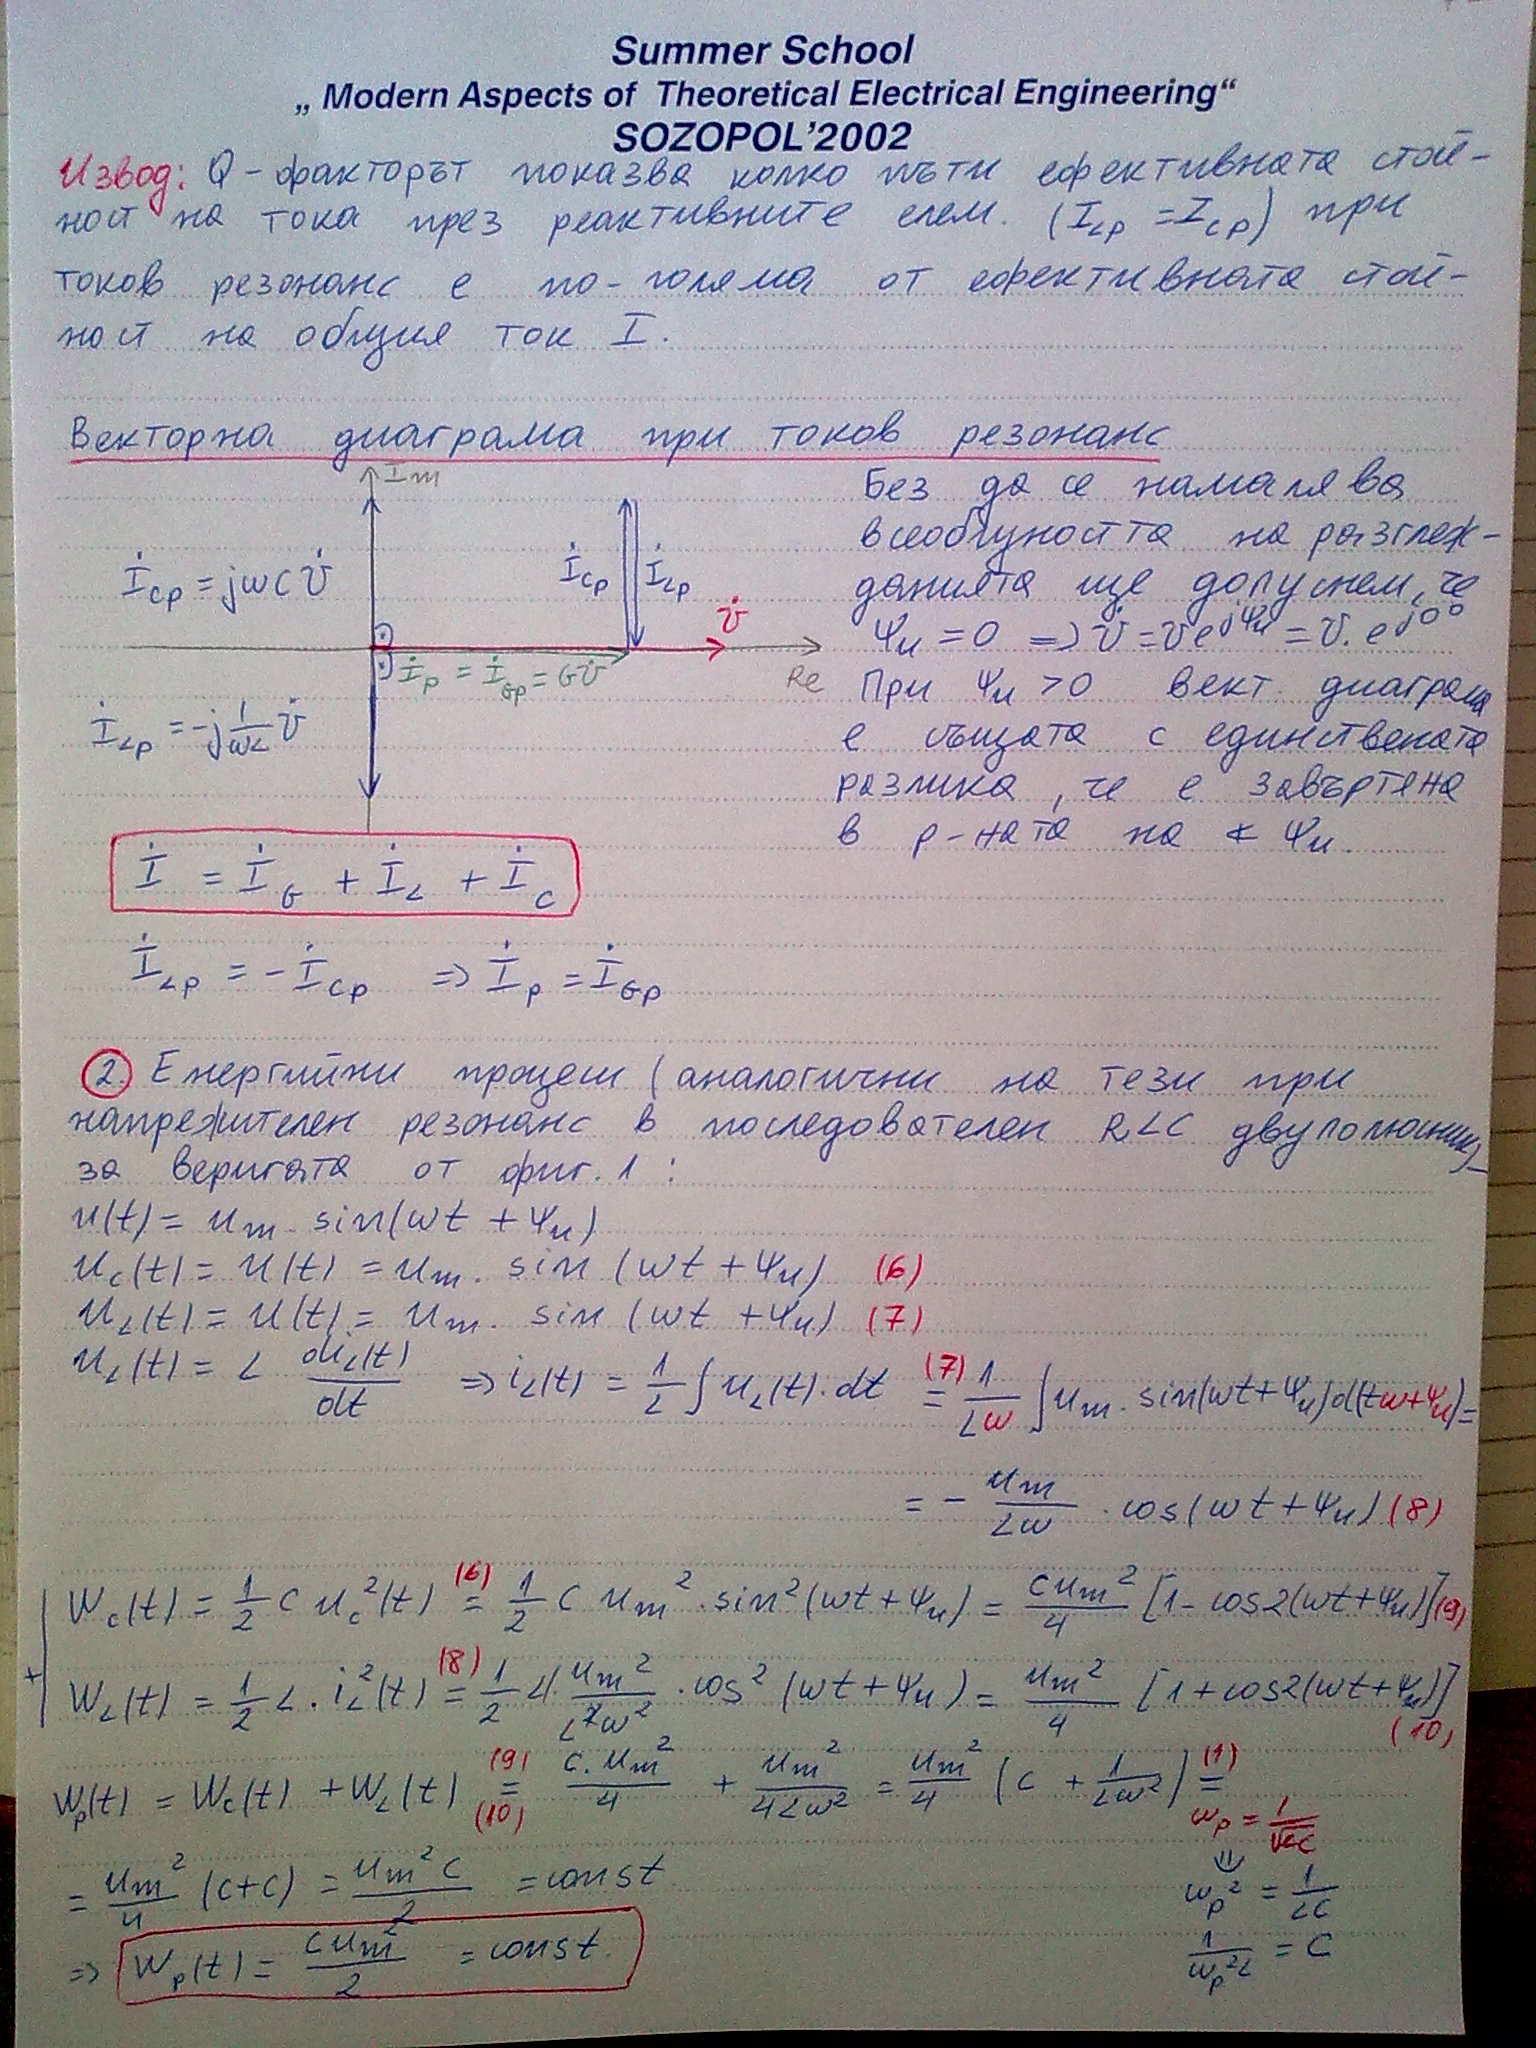 Summer School
„ Modern Aspects of Theoretical Electrical Engineering“
SOZOPOL'2002
Извод: Q-факторът показва колко пъти ефективната стой-
ност на тока през реактивните елем. (I_LP = I_CP) при
токов резонанс е по-голяма от ефективната стой-
ност на общия ток I.
Векторна диаграма при токов резонанс
Im
İ_CP = jωC U̇
İ_CP İ_LP
U̇
İ_P = İ_GP = G U̇
Re
İ_LP = -j 1/ωL U̇
Без да се намалява
всеобщността на разглеж-
данията ще допуснем, че
Ψu = 0 => U̇ = U e^jΨu = U . e^j0°
При Ψu > 0 вект. диаграма
е същата с единствената
разлика, че е завъртяна
в р-ната на ∢ Ψu.
İ = İ_G + İ_L + İ_C
İ_LP = - İ_CP => İ_P = İ_GP
2. Енергийни процеси (аналогични на тези при
напрежителен резонанс в последователен RLC двуполюсник)
за веригата от фиг. 1 :
u(t) = um . sin(ωt + Ψu)
uc(t) = u(t) = um . sin (ωt + Ψu) (6)
uL(t) = u(t) = um . sin (ωt + Ψu) (7)
uL(t) = L diL(t)/dt => iL(t) = 1/L ∫ uL(t) . dt =(7) 1/Lω ∫ um . sin(ωt + Ψu) d(tω + Ψu) =
= - um/Lω . cos(ωt + Ψu) (8)
Wc(t) = 1/2 C uc²(t) =(6) 1/2 C um² . sin²(ωt + Ψu) = Cum²/4 [1 - cos2(ωt + Ψu)] (9)
+
WL(t) = 1/2 L . iL²(t) =(8) 1/2 L um²/L²ω² . cos² (ωt + Ψu) = um²/4 [1 + cos2(ωt + Ψu)]
(10)
Wp(t) = Wc(t) + WL(t) =(9)(10) C.um²/4 + um²/4Lω² = um²/4 (C + 1/Lω²) =(1)
ωp = 1/√LC
= um²/4 (C+C) = um²C/2 = const
ωp² = 1/LC
=> Wp(t) = Cum²/2 = const.
1/ωp²L = C